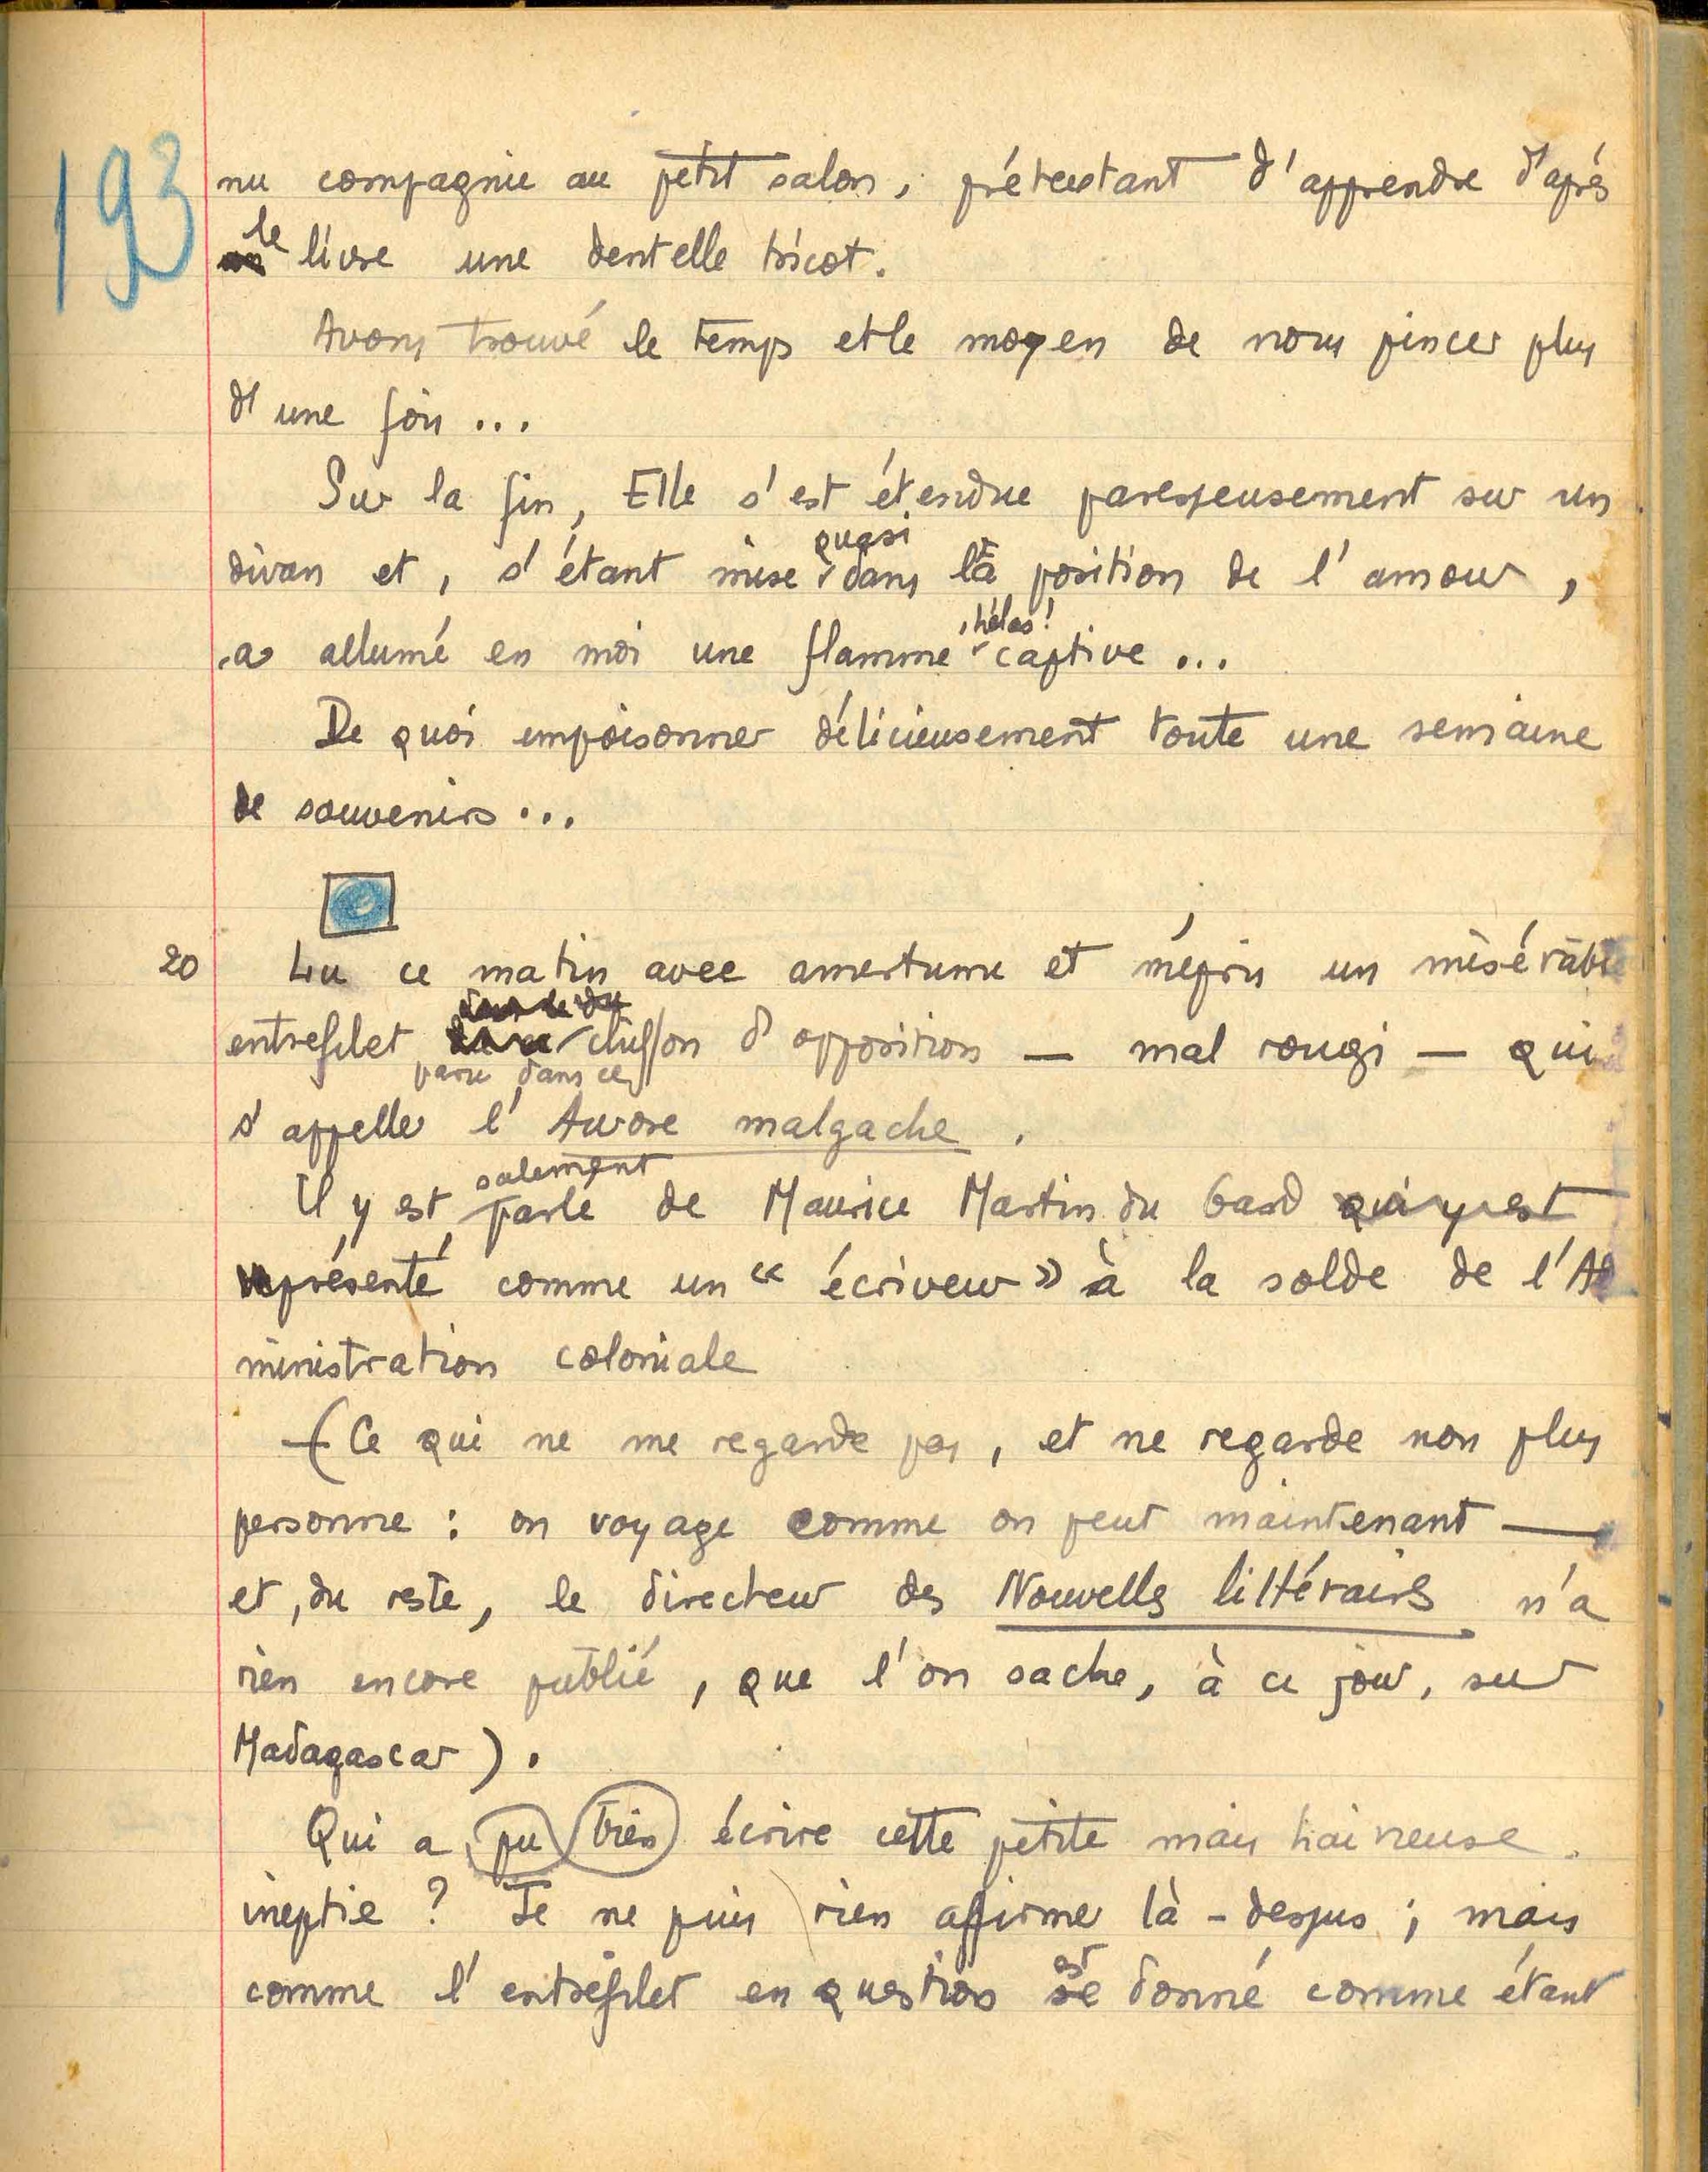 193
nu compagnie au petit salon, prétextant d'apprendre d'après
le
livre une dentelle tricot.
Avons trouvé le temps et le moyen de nous pincer plus
d'une fois...
Sur la fin, Elle s'est étendue paresseusement sur un
quasi
divan et, s'étant mise dans la position de l'amour,
, hélas !
a allumé en moi une flamme captive...
De quoi empoisonner délicieusement toute une semaine
de souvenirs...
20 Lu ce matin avec amertume et mépris un misérable
entrefilet chiffon d'opposition — mal rougi — qui
paru dans ce
s'appelle l'Aurore malgache.
salement
Il y est parlé de Maurice Martin du Gard qui y est
représenté comme un « écriveur » à la solde de l'Ad
ministration coloniale
(Ce qui ne me regarde pas, et ne regarde non plus
personne : on voyage comme on peut maintenant —
et, du reste, le directeur des Nouvelles littéraires n'a
rien encore publié, que l'on sache, à ce jour, sur
Madagascar).
Qui a pu bien écrire cette petite mais haineuse
ineptie ? Je ne puis rien affirmer là-dessus ; mais
est
comme l'entrefilet en question se donné comme étant